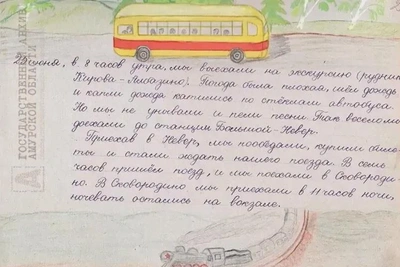 29 июня, в 8 часов утра, мы выехали на экскурсию (рудник
Кирова – Либазино). Погода была плохая, шёл дождь
и капли дождя катились по стёклам автобуса.
Но мы не унывали и пели песни. Так весело мы
доехали до станции Большой-Невер.
Приехав в Невер, мы пообедали, купили биле-
ты и стали ждать нашего поезда. В семь
часов пришёл поезд, и мы поехали в Сковороди-
но. В Сковородино мы приехали в 11 часов ночи,
ночевать остались на вокзале.
ГОСУДАРСТВЕННЫЙ АРХИВ
АМУРСКОЙ ОБЛАСТИ